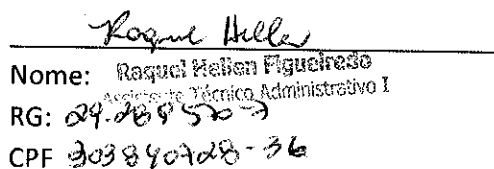 Raquel Hellen
Nome: Raquel Hellen Figueiredo
Assistente Técnico Administrativo I
RG:
CPF 303840728-36